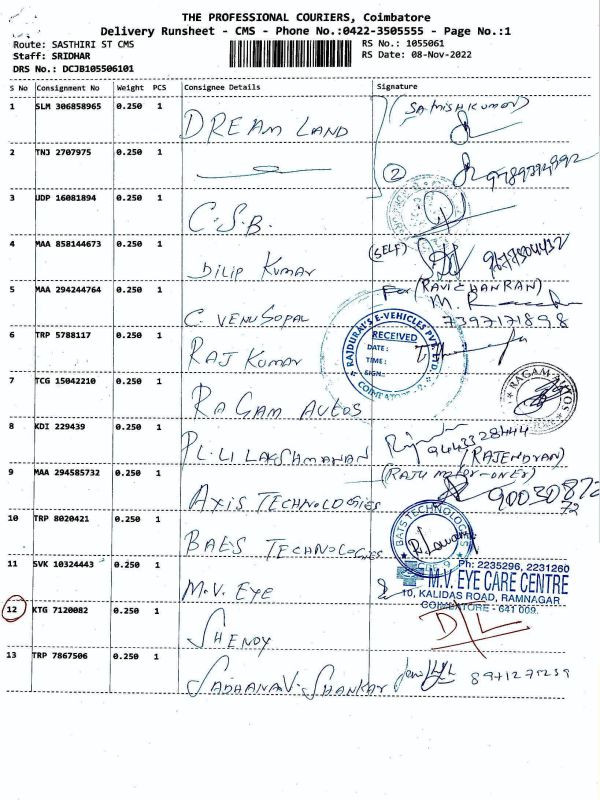 THE PROFESSIONAL COURIERS, Coimbatore
Delivery Runsheet - CMS - Phone No.:0422-3505555 - Page No.:1
Route: SASTHIRI ST CMS RS No.: 1055061
Staff: SRIDHAR RS Date: 08-Nov-2022
DRS No.: DCJB105506101
S No Consignment No Weight PCS Consignee Details Signature
1 SLM 306858965 0.250 1 DREAM LAND
2 TNJ 2707975 0.250 1 2
3 UDP 16081894 0.250 1 C.S.B.
4 MAA 858144673 0.250 1 Dilip Kumar (SELF)
5 MAA 294244764 0.250 1 C VENUGOPAL For (RAVICHANRAN)
M.
7397171898
6 TRP 5788117 0.250 1 RAJ Kumar
RAJDURAI'S E-VEHICLES PVT LTD
RECEIVED
DATE:
TIME:
SIGN:
COIMBATORE
7 TCG 15042210 0.250 1 RAGAM AUTOS RAGAM-AUTOS
8 KDI 229439 0.250 1 PL.LI LAKSHMANAN 9443328444
(RAJENDRAN)
9 MAA 294585732 0.250 1 AXIS TECHNOLOGIES
10 TRP 8020421 0.250 1 BAES TECHNOLOGIES BATS TECHNOLOGIES
11 SVK 10324443 0.250 1 M.V. EYE
Ph: 2235296, 2231260
M.V. EYE CARE CENTRE
10, KALIDAS ROAD, RAMNAGAR
COIMBATORE - 641 009.
12 KTG 7120082 0.250 1 SHENOY D/L
13 TRP 7867506 0.250 1 SADHANA.V.SHANKAR